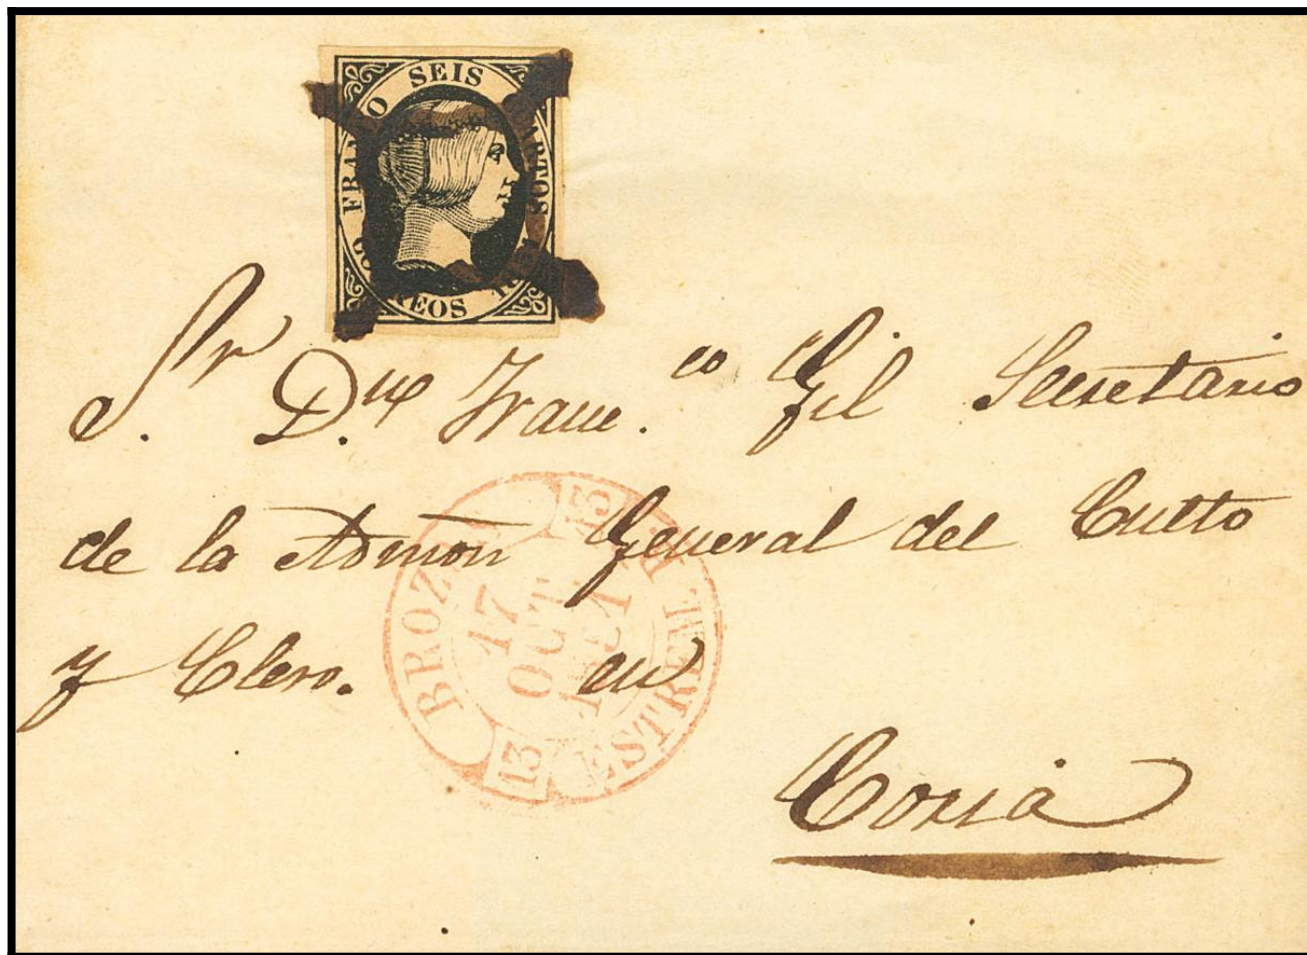 FRANCO SEIS CUARTOS
CORREOS 1851
Sr. D.n Franc.co Gil Secretario
de la Admon General del Culto
y Clero. en
Coria
BROZAS
13
17
OCT
1851
ESTREM. B.
13